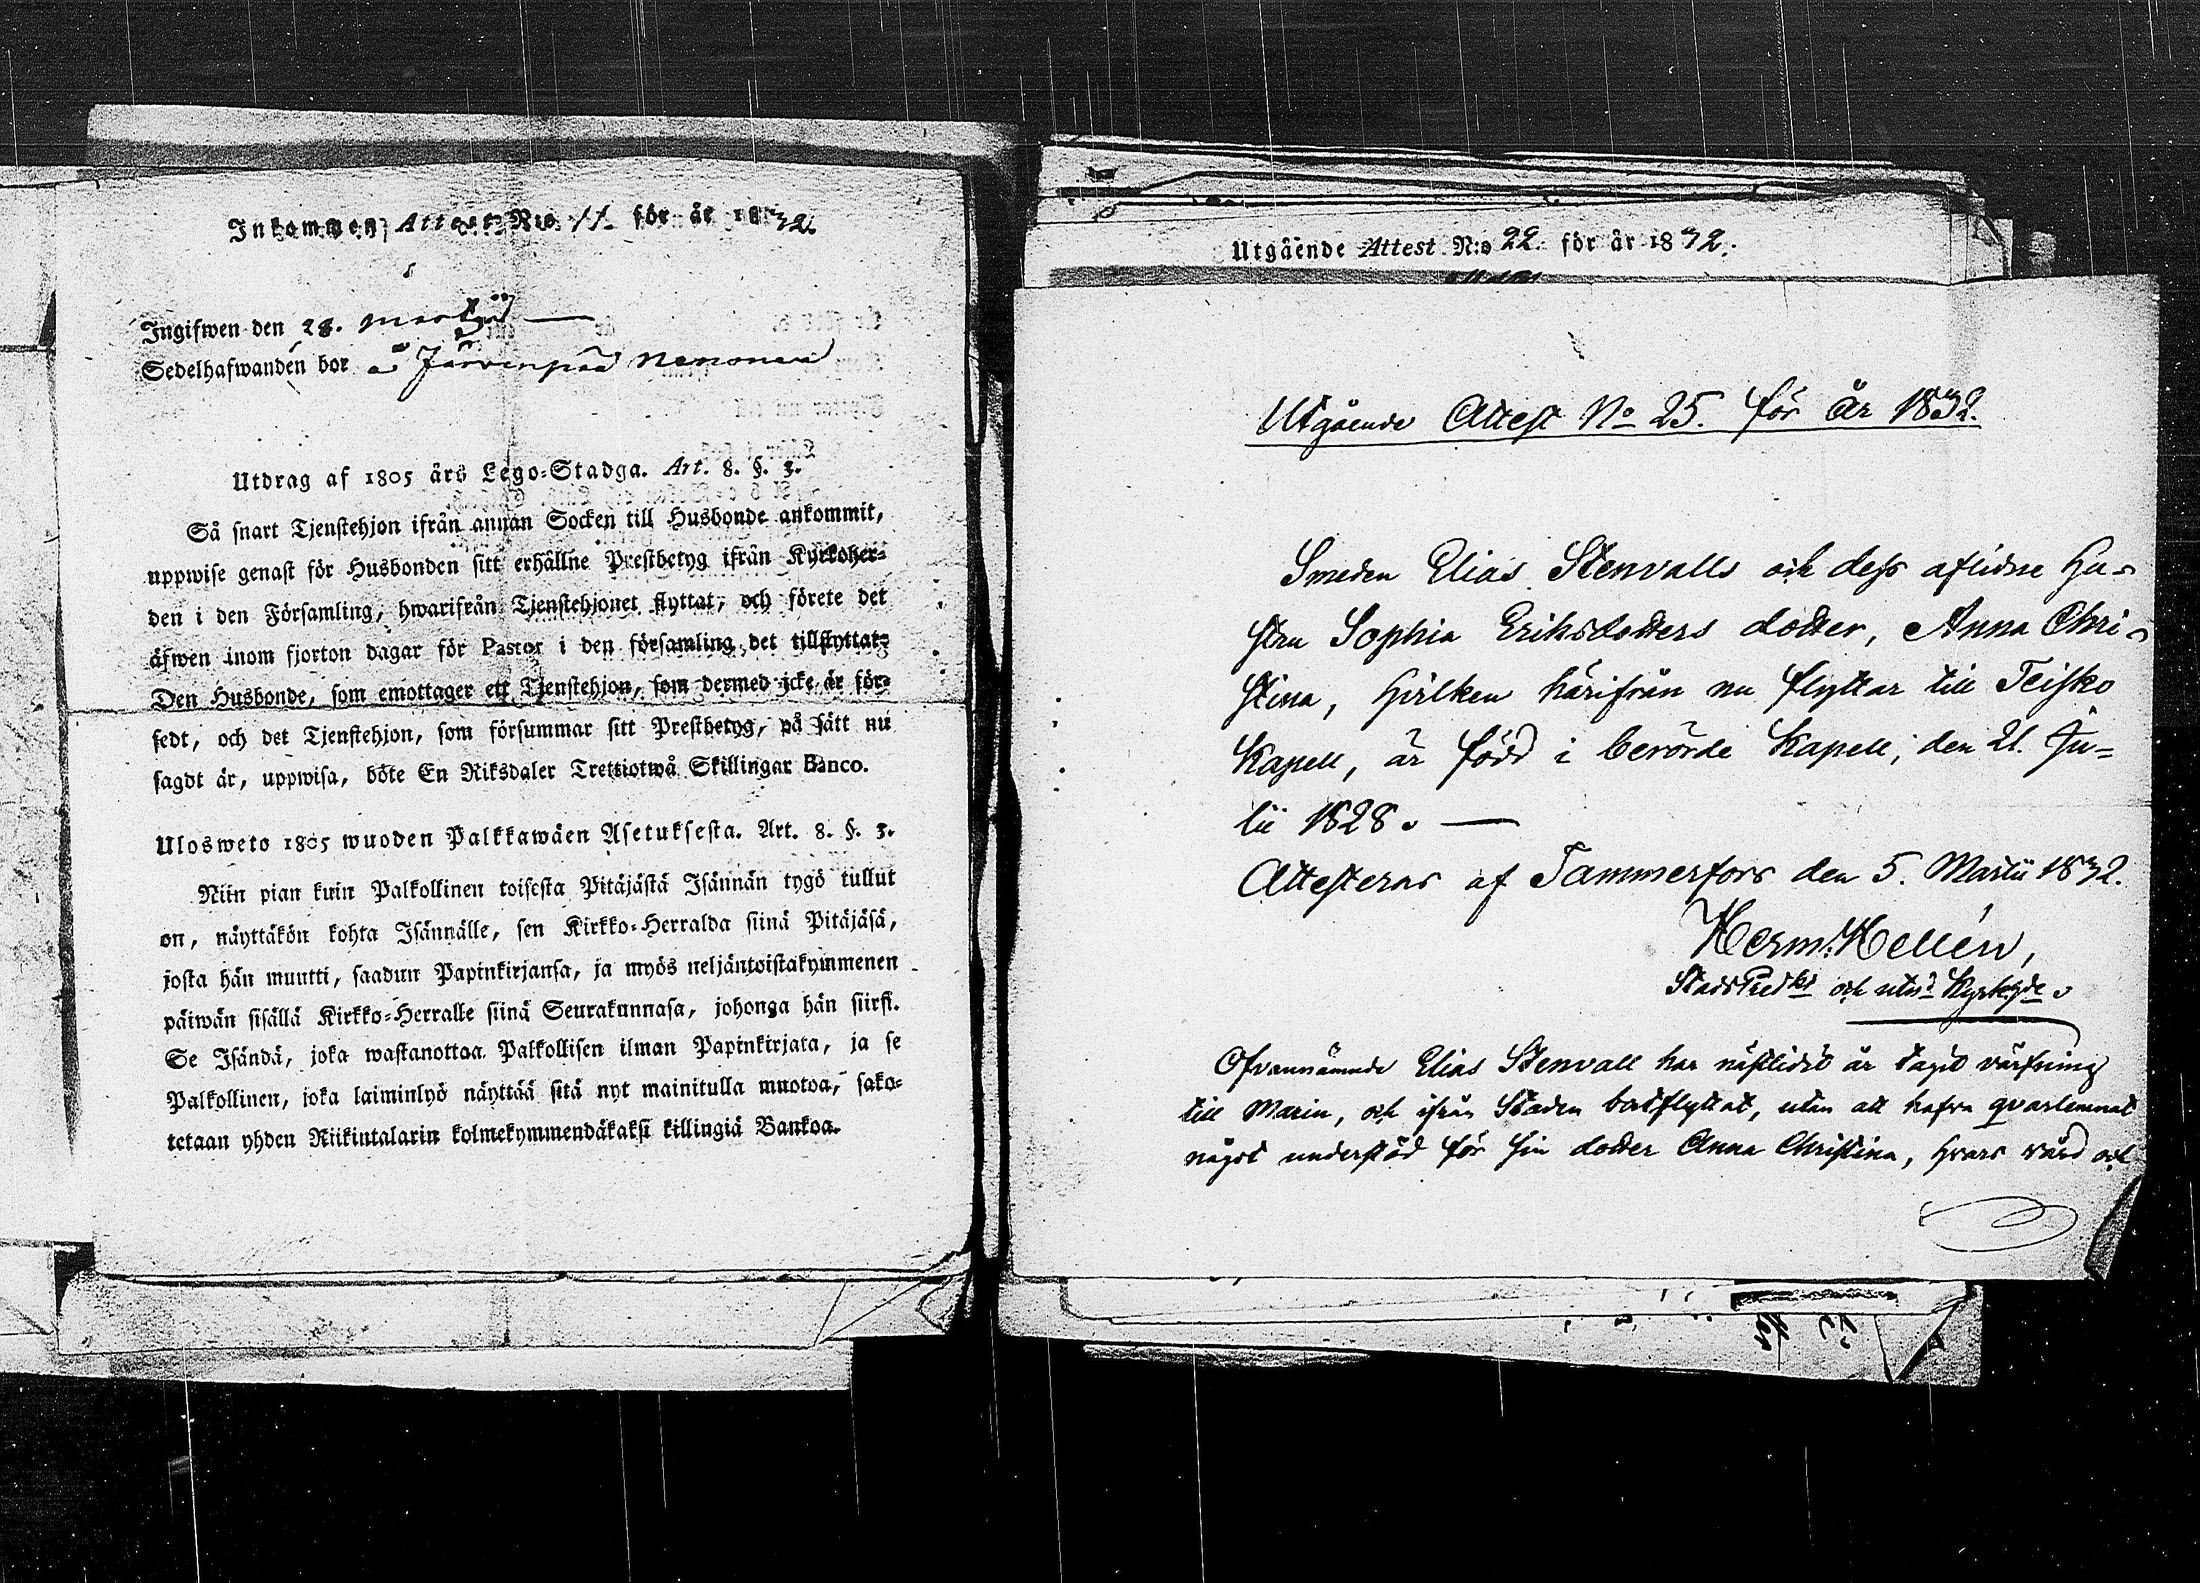 Inkommen Attest N:o 11. för år 1832.
Ingifwen den 28. Martii
Sedelhafwanden bor å Järvenpää Nenonen
Utdrag af 1805 års Lego-Stadga. Art. 8. §. 3.
Så snart Tjenstehjon ifrån annan Socken till Husbonde ankommit,
uppwise genast för Husbonden sitt erhållne Prestbetyg ifrån Kyrkoher-
den i den Församling, hwarifrån Tjenstehjonet flyttat, och förete det
äfwen inom fjorton dagar för Pastor i den församling det tillflyttat.
Den Husbonde, som emottager ett Tjenstehjon, som dermed icke är för-
sedt, och det Tjenstehjon, som försummar sitt Prestbetyg, på sätt nu
sagdt är, uppwisa, böte En Riksdaler Trettiotwå Skillingar Banco.
Ulosweto 1805 wuoden Palkkawäen Asetuksesta. Art. 8. §. 3.
Niin pian kuin Palkollinen toisesta Pitäjästä Isännän tygö tullut
on, näyttäkön kohta Isännälle, sen Kirkko-Herralda siinä Pitäjäsä,
josta hän muutti, saadun Papinkirjansa, ja myös neljäntoistakymmenen
päiwän sisällä Kirkko-Herralle siinä Seurakunnasa, johonga hän siirsi.
Se Isändä, joka wastanottaa Palkollisen ilman Papinkirjata, ja se
Palkollinen, joka laiminlyö näyttää sitä nyt mainitulla muotoa, sako-
tetaan yhden Riikintalarin kolmekymmendäkaksi killingiä Bankoa.
Utgående Attest N:o 22. för år 1832.
Utgående Attest No 25. för år 1832.
Smeden Elias Stenvalls och dess aflidne Hu-
stru Sophia Eriksdotters dotter, Anna Chri-
stina, hvilken härifrån nu flyttar till Teisko
Kapell, är född i berörde Kapell, den 21. Ju-
lii 1828. —
Attesteras af Tammerfors den 5. Martii 1832.
Herm. Hellén,
StadsPredkt och utnd Kyrkhde.
Ofvannämnde Elias Stenvall har nästlidit år tagit värfning
till Marin, och ifrån Staden bortflyttat, utan att hafva qvarlemnat
något understöd för sin dotter Anna Christina, hvars vård och